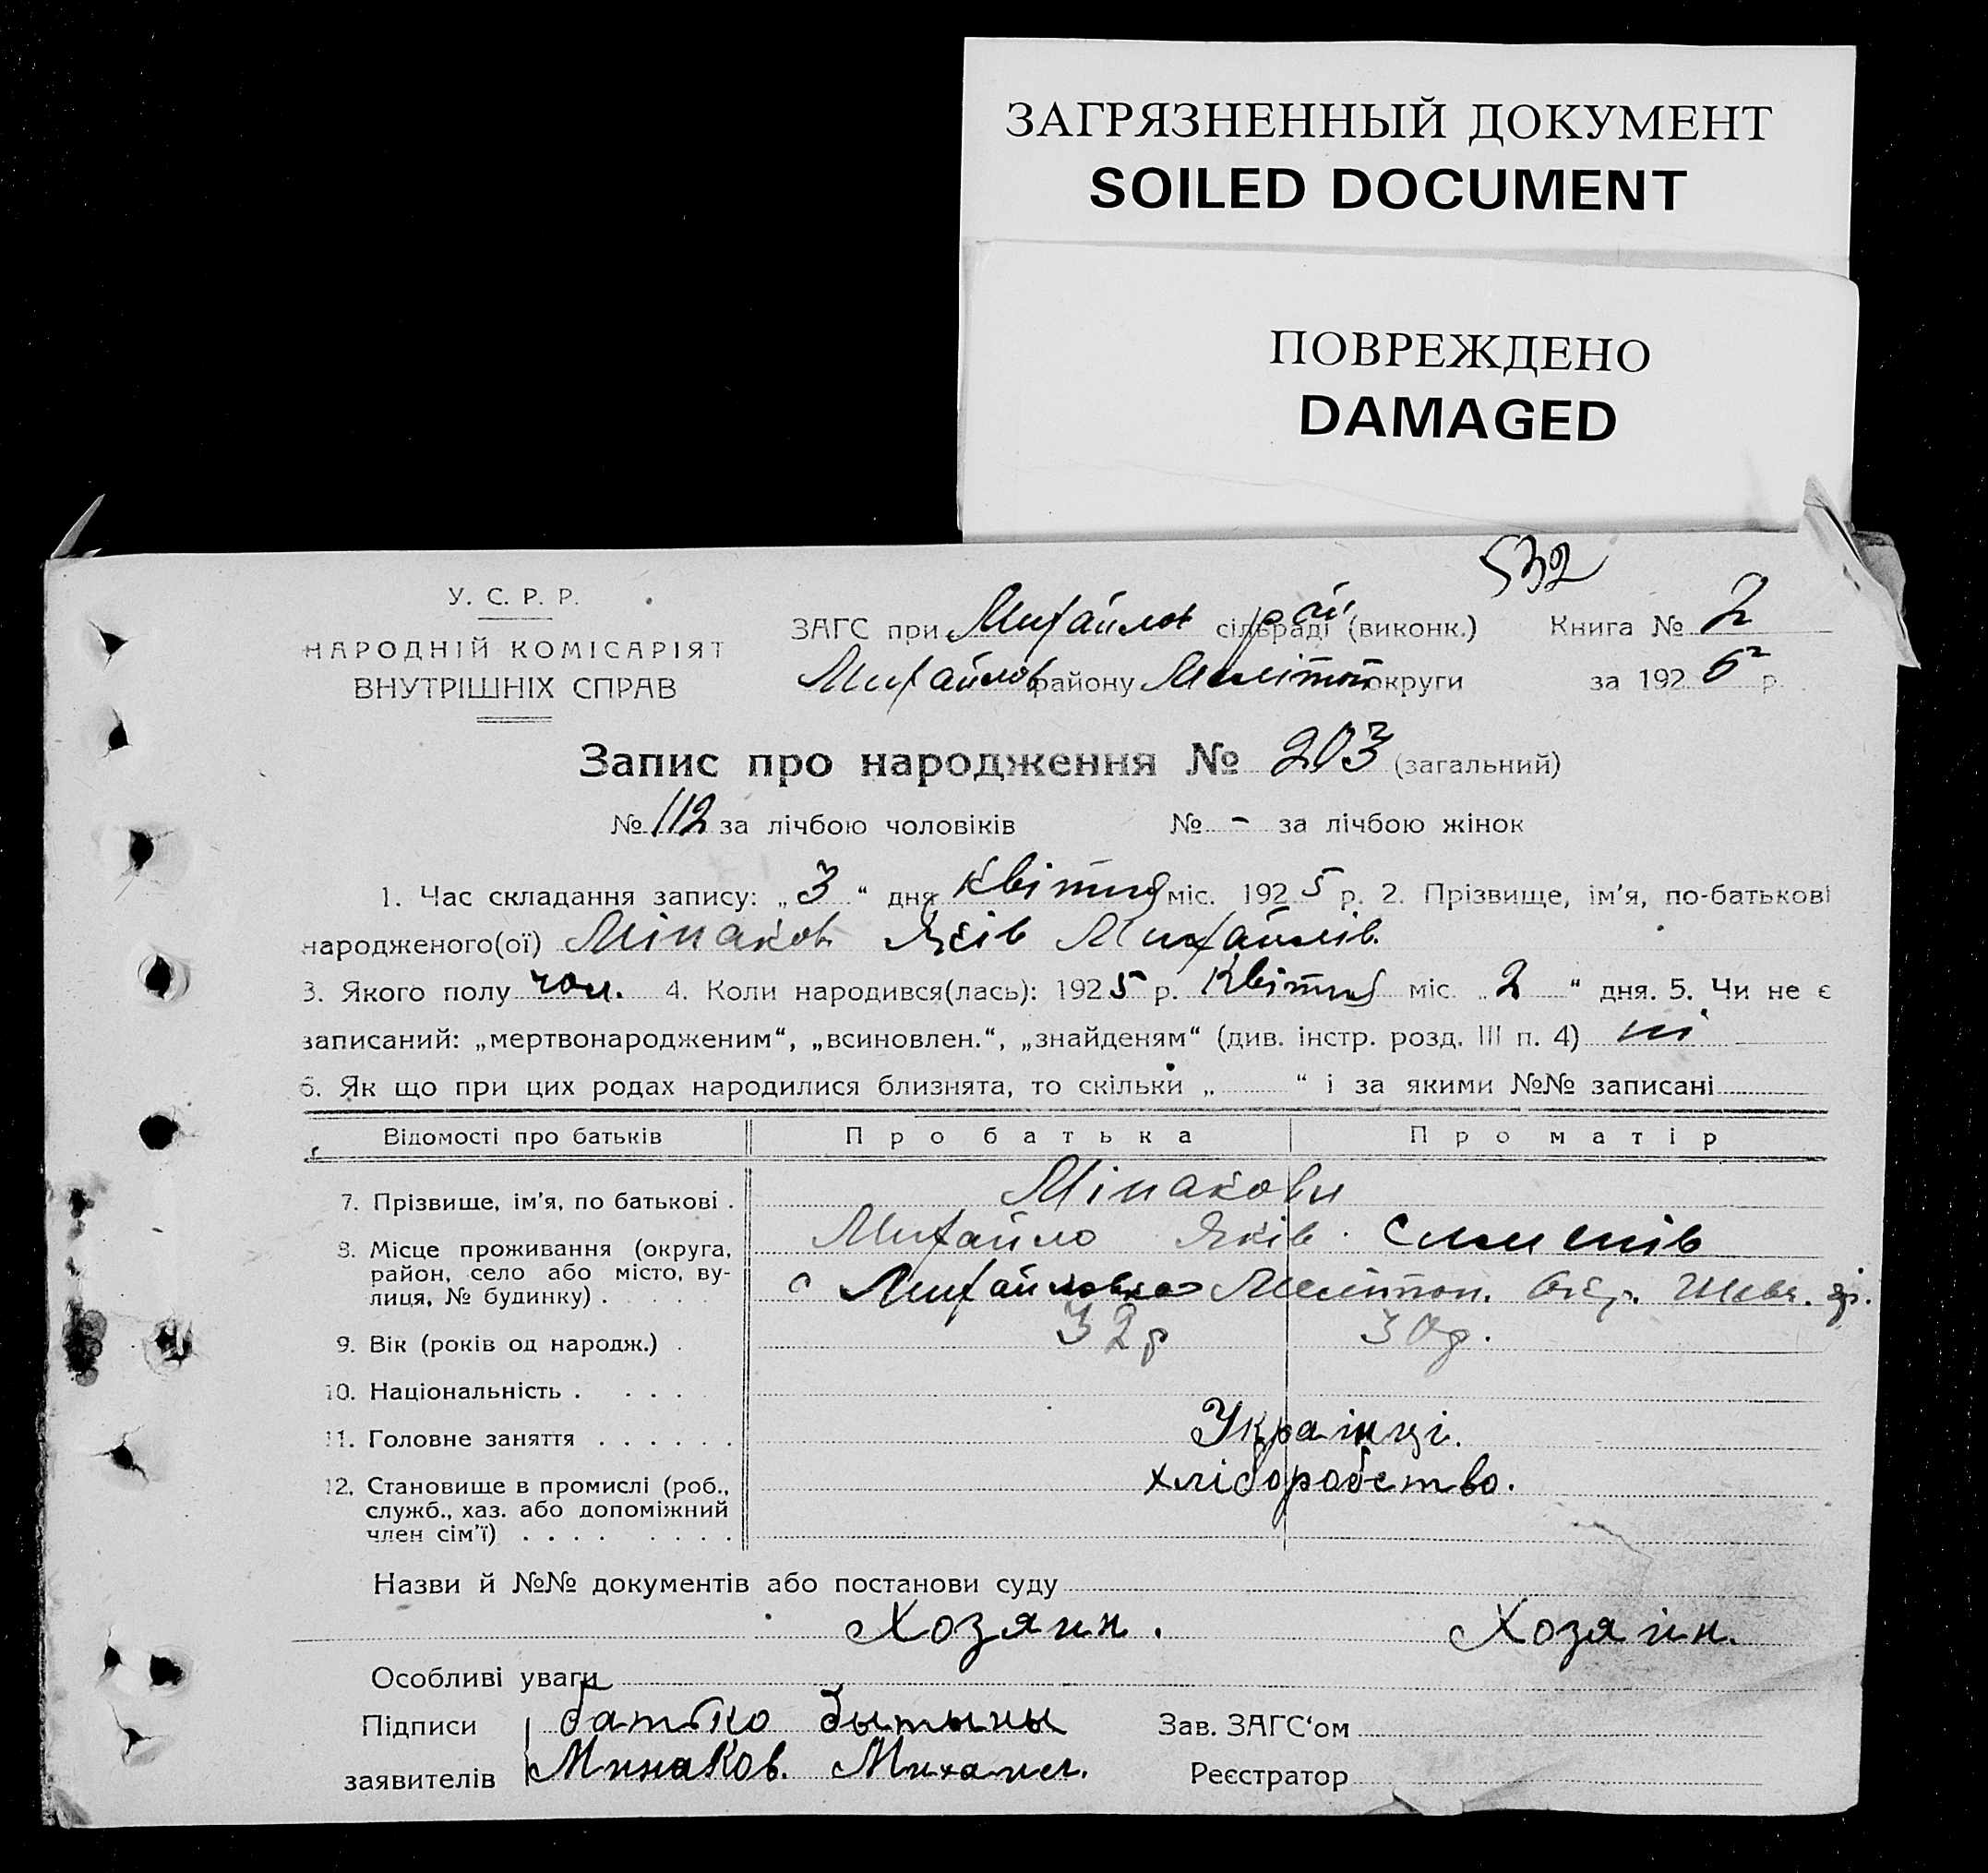 ЗАГРЯЗНЕННЫЙ ДОКУМЕНТ
SOILED DOCUMENT
ПОВРЕЖДЕНО
DAMAGED
532
У. С. Р. Р.
НАРОДНІЙ КОМІСАРІЯТ
ВНУТРІШНІХ СПРАВ
ЗАГС при Михайлов сільраді рай (виконк.) Книга № 2
Михайлов району Мелітоп округи за 1925 р.
Запис про народження № 203 (загальний)
№ 112 за лічбою чоловіків № - за лічбою жінок
1. Час складання запису: „3“ дня Квітня міс. 1925 р. 2. Прізвище, ім'я, по-батькові
народженого(ої) Мінаков Яків Михайлів.
3. Якого полу чол. 4. Коли народився(лась): 1925 р. Квітня міс. „2“ дня. 5. Чи не є
записаний: „мертвонародженим“, „всиновлен.“, „знайденям“ (див. інстр. розд. III п. 4) ні
6. Як що при цих родах народилися близнята, то скільки „ “ і за якими №№ записані
Відомості про батьків Про батька Про матір
7. Прізвище, ім'я, по батькові . Мінакови
8. Місце проживання (округа, Михайло Яків.
район, село або місто, ву-
лиця, № будинку) . с Михайловка Мелітоп. Окр.
9. Вік (років од народж.) . 32 р 30 р.
10. Національність . . . .
11. Головне заняття . . . . . . Українці.
12. Становище в промислі (роб., хліборобство.
служб., хаз. або допоміжний
член сім'ї) . . . . . . . .
Назви й №№ документів або постанови суду
Хозяин. Хозяін.
Особливі уваги
Підписи батько дытыны Зав. ЗАГС'ом
заявителів Минаков. Михаил. Реєстратор